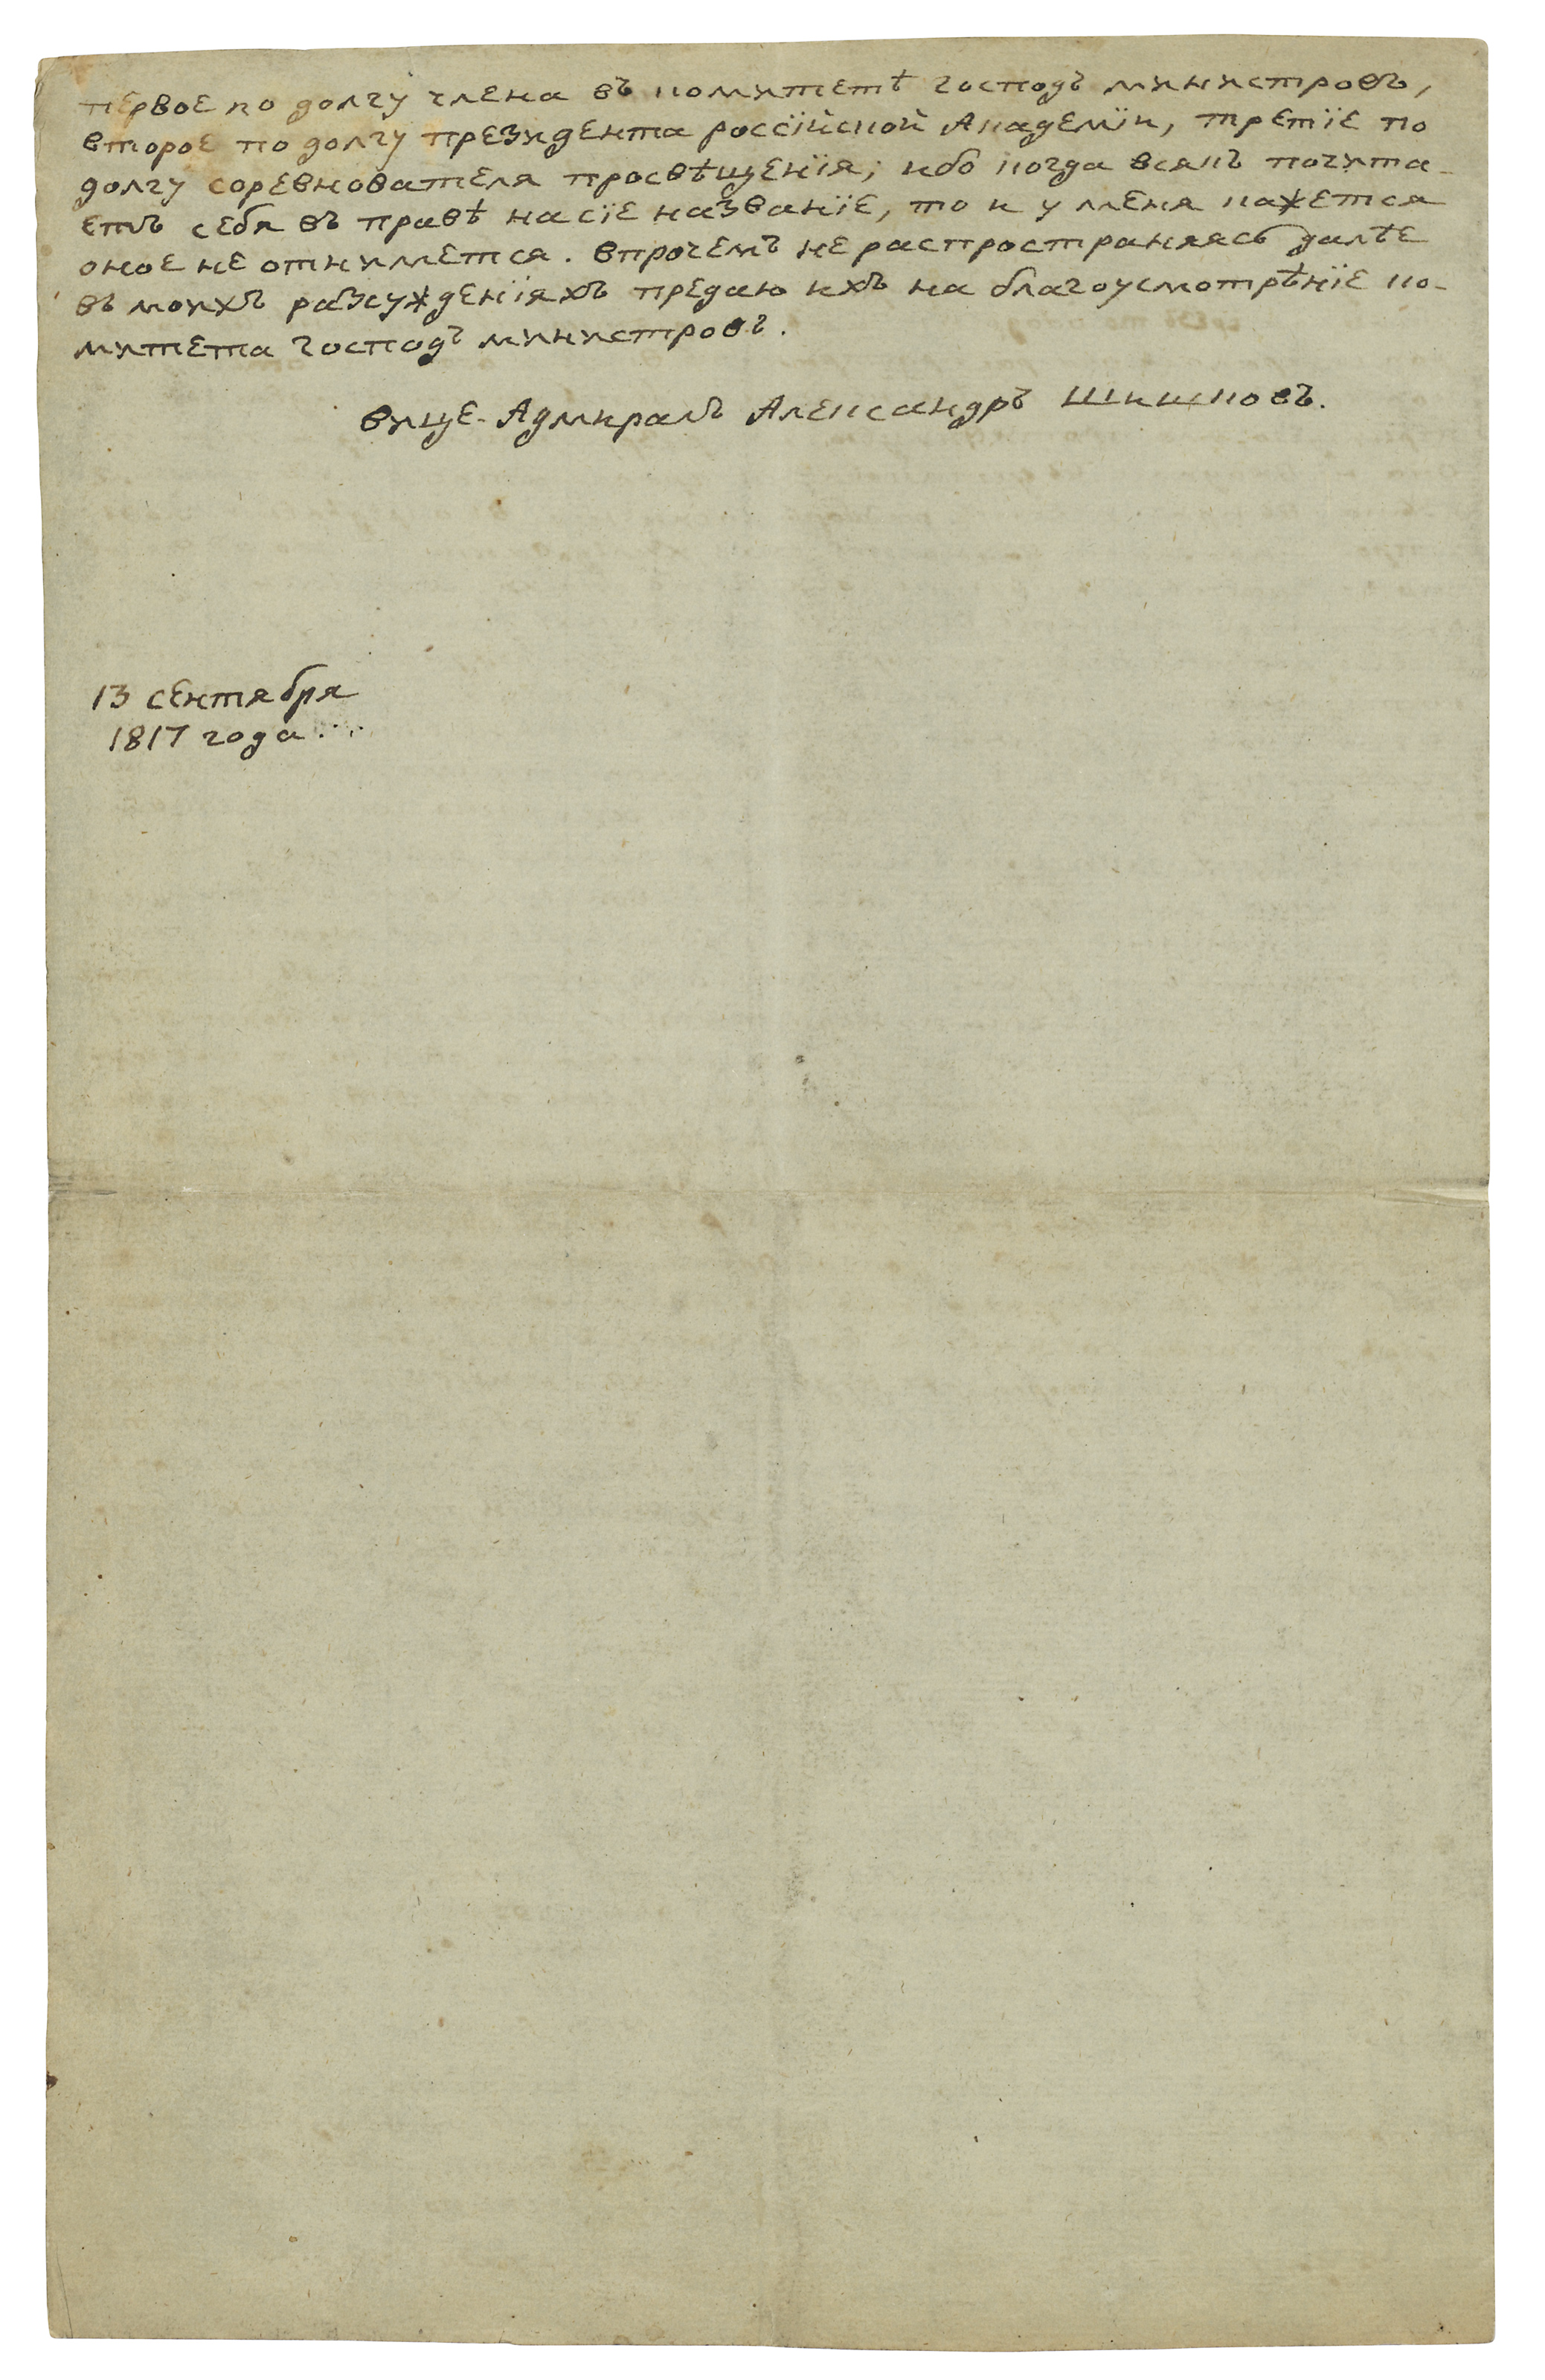 первое по долгу члена въ комитетѣ господъ министровъ,
второе по долгу президента россїйской Академїи, третїе по
долгу соревнователя просвѣщенїя; ибо когда всякъ почита-
етъ себя въ правѣ на сїе названїе, то и у меня кажется
оное не отнимется. впрочемъ не распространяясь далѣе
въ моихъ разсужденїяхъ предаю ихъ на благоусмотрѣнїе ко-
митета господъ министровъ.
вице-Адмиралъ Александръ Шишковъ.
13 сентября
1817 года.